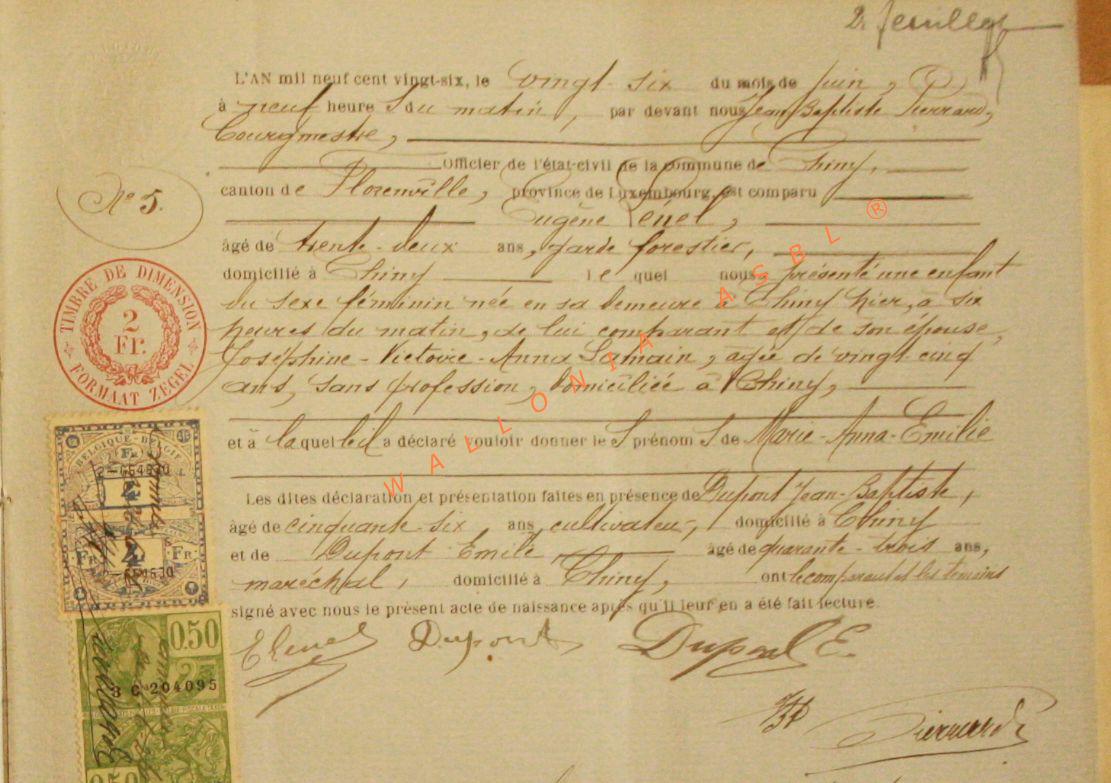 2e feuillet
L'AN mil neuf cent vingt-six, le vingt-six du mois de juin,
à neuf heures du matin, par devant nous Jean Baptiste Pierrard,
Bourgmestre,
Officier de l'état-civil de la commune de Chiny,
canton de Florenville, province de Luxembourg, est comparu
N° 5.
Eugène Lénel,
âgé de trente-deux ans, garde forestier,
domicilié à Chiny lequel nous a présenté une enfant
du sexe féminin née en sa demeure à Chiny hier, à six
heures du matin, de lui comparant et de son épouse,
Joséphine-Victoire-Anna Lamain, agée de vingt cinq
ans, sans profession, domiciliée à Chiny,
et à laquelle il a déclaré vouloir donner les prénoms de Marie-Anna-Emilie
Les dites déclaration et présentation faites en présence de Dupont Jean-Baptiste,
âgé de cinquante-six ans, cultivateur, domicilié à Chiny
et de Dupont Emile âgé de quarante-trois ans,
maréchal, domicilié à Chiny, ont le comparant et les témoins
signé avec nous le présent acte de naissance après qu'il leur en a été fait lecture.
ELenel Dupont Dupont E
Pierrard
TIMBRE DE DIMENSION
2
Fr.
FORMAAT ZEGEL
BELGIQUE-BELGIË
Fr
4
FR. 4 FR.
0.50
3 C 204095
0.50
WALLONIA ASBL ®